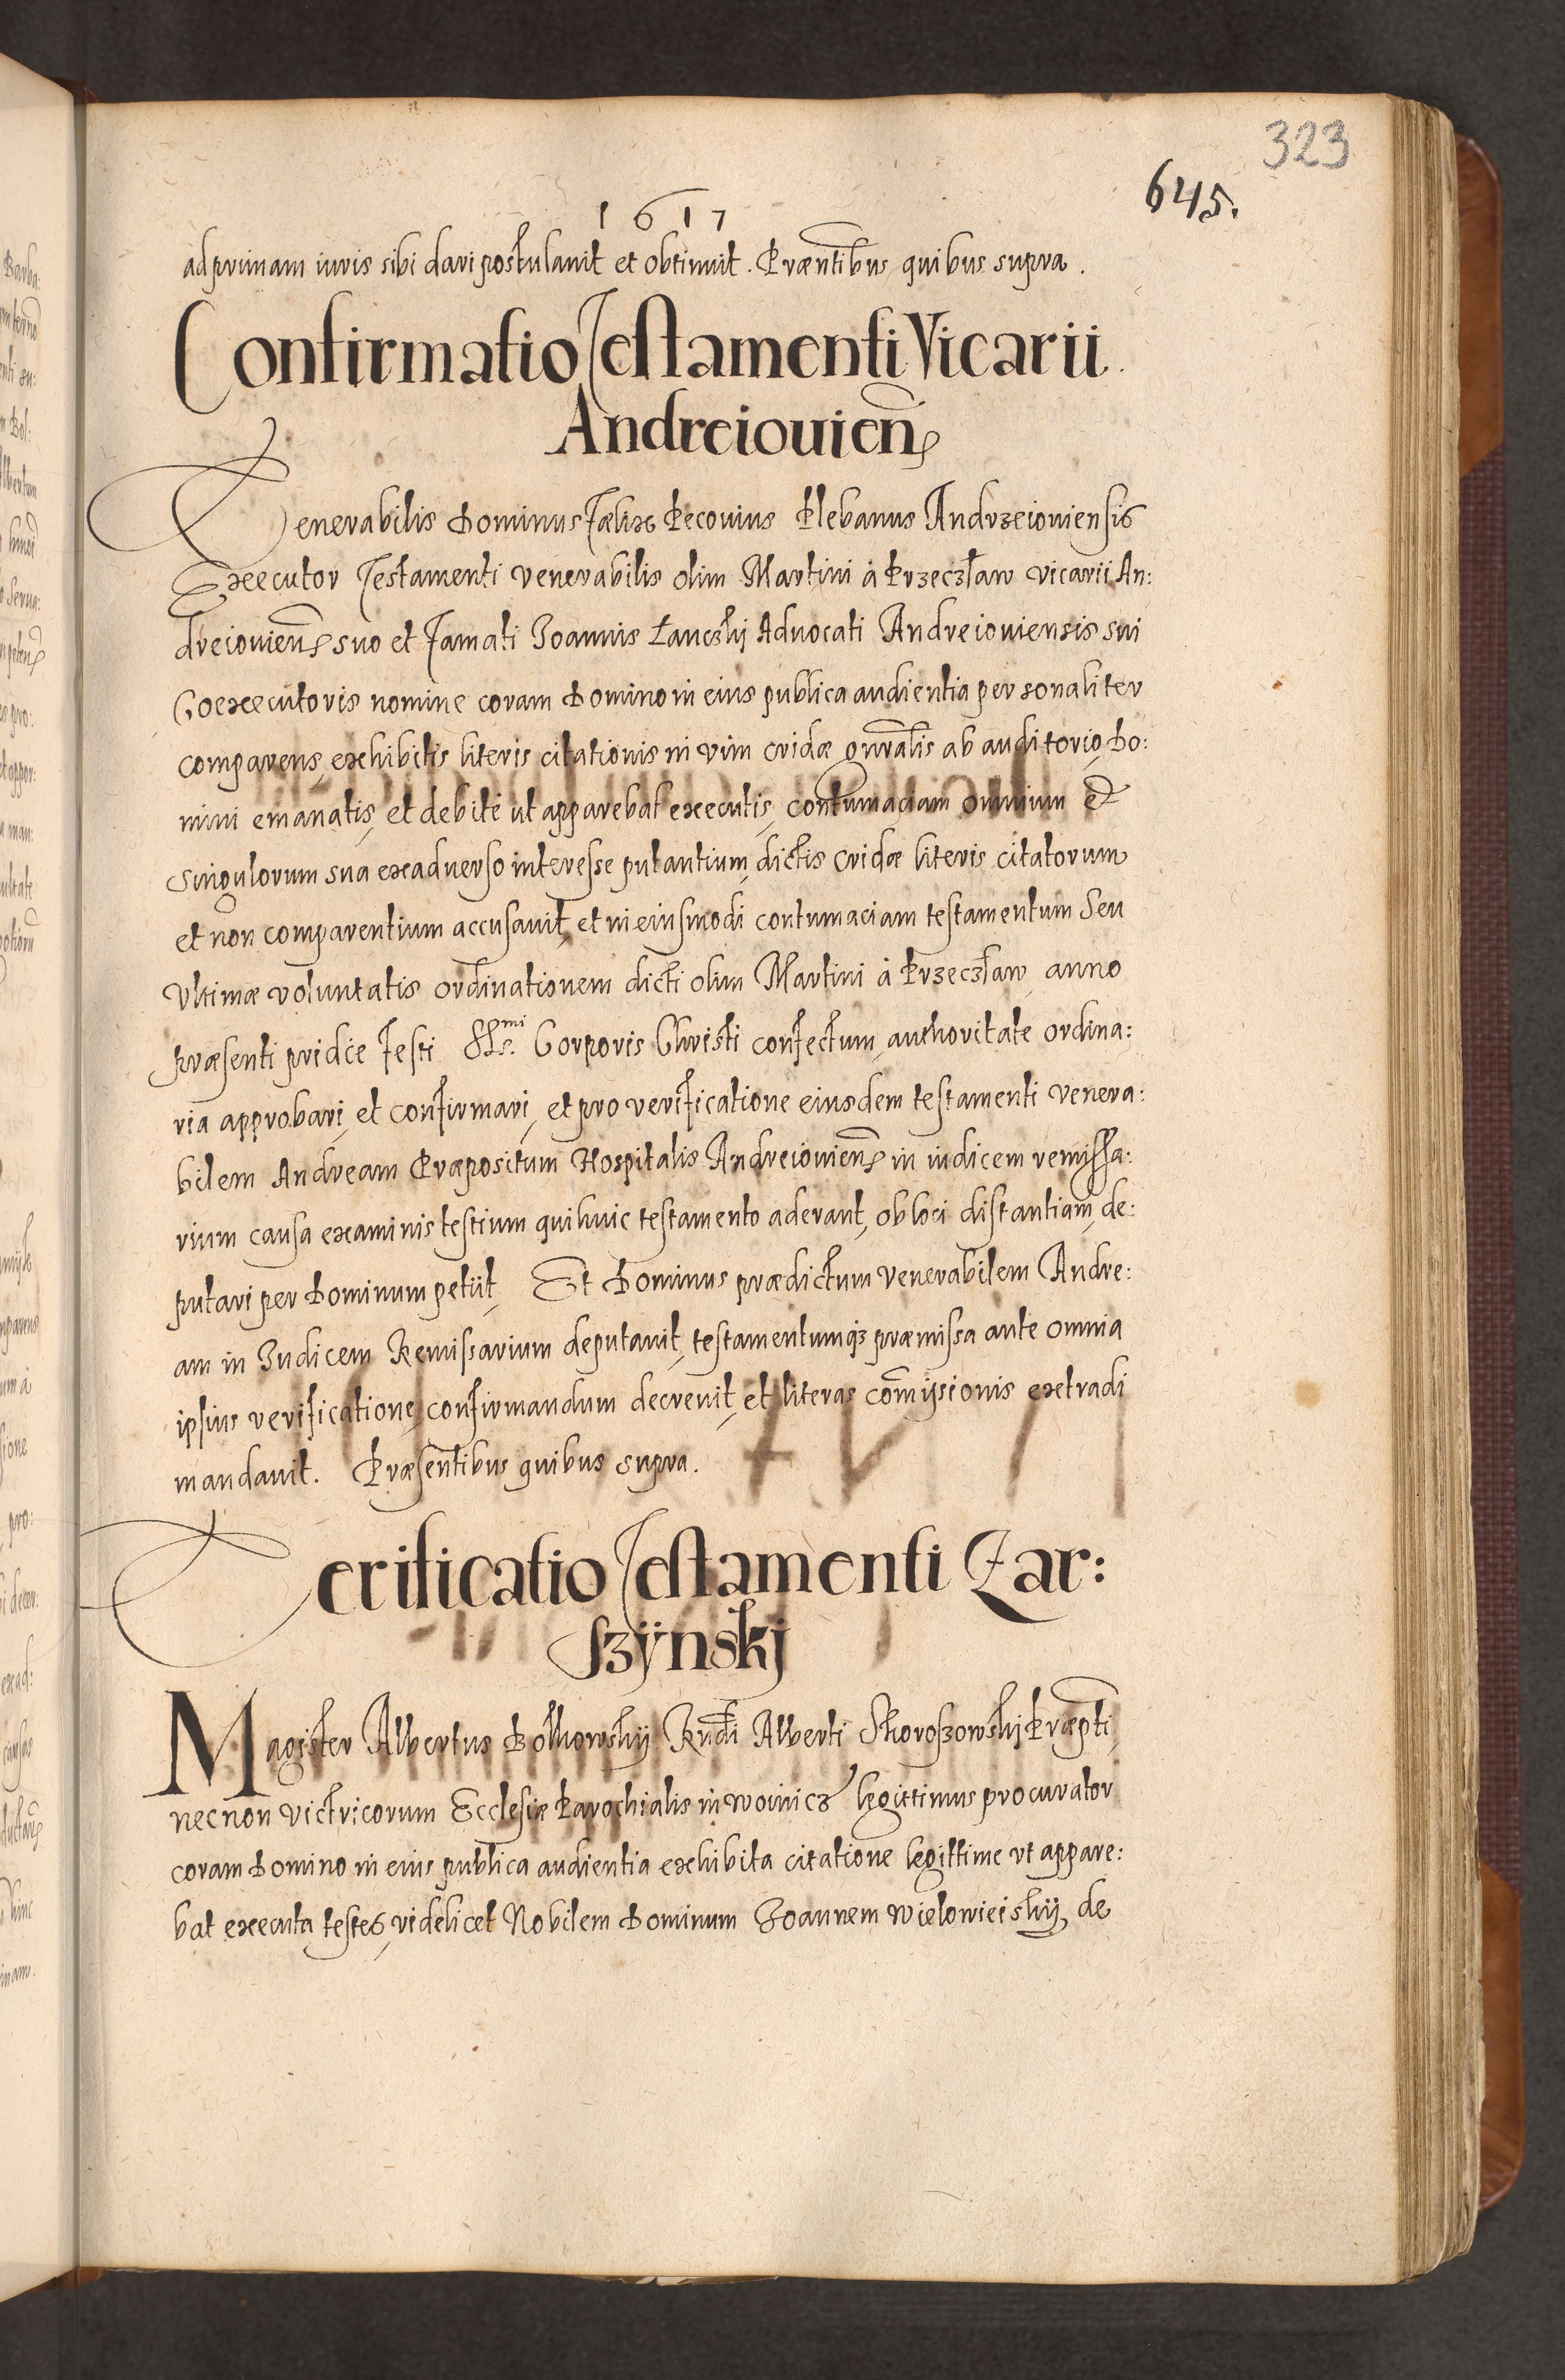 323
645.
1617
ad primam iuris sibi dari postulauit et obtinuit. Præntibus quibus supra.
Confirmatio Testamenti Vicarii
Andreiouien̄
Venerabilis Dominus Fælix Pecouius Plebanus Andrzeiouiensis
Executor Testamenti venerabilis olim Martini à Przeczław vicarii An:
dreiouien̄ suo et Famati Joannis Łancskj Aduocati Andreiouiensis sui
Coexecutoris nomine coram Domino in eius publica audientia personaliter
comparens, exhibitis literis citationis in vim cridæ gnrālis ab auditorio Do:
mini emanatis, et debitè ut apparebat executis, contumaciam omnium et
singulorum sua exaduerso interesse putantium, dictis cridæ literis citatorum
et non comparentium accusauit, et in eiusmodi contumaciam testamentum seu
Vltimæ voluntatis ordinationem dicti olim Martini à Przeczław anno
præsenti pridie Festi SSmi. Corporis Christi confectum, authoritate ordina:
ria approbari, et confirmari, et pro verificatione eiusdem testamenti venera:
bilem Andream Præpositum Hospitalis Andreiouien̄ in iudicem remissa:
rium causa examinis testium qui huic testamento aderant, ob loci distantiam, de:
putari per Dominum petiit, Et Dominus prædictum venerabilem Andre:
am in Judicem Remissarium deputauit, testamentumq3 præmissa ante omnia
ipsius verificatione, confirmandum decreuit, et literas com̄ysionis extradi
mandauit. Præsentibus quibus supra.
Verificatio Testamenti Zar:
szÿnskj
Magister Albertus Dołkowskÿ Rndi Alberti Skoroszowskj Præpti,
necnon victricorum Ecclesiæ Parochialis in Woinicz legittimus procurator
coram Domino in eius publica audientia exhibita citatione legittime vt appare:
bat executa testes, videlicet Nobilem Dominum Joannem Wielowieiskÿ, de